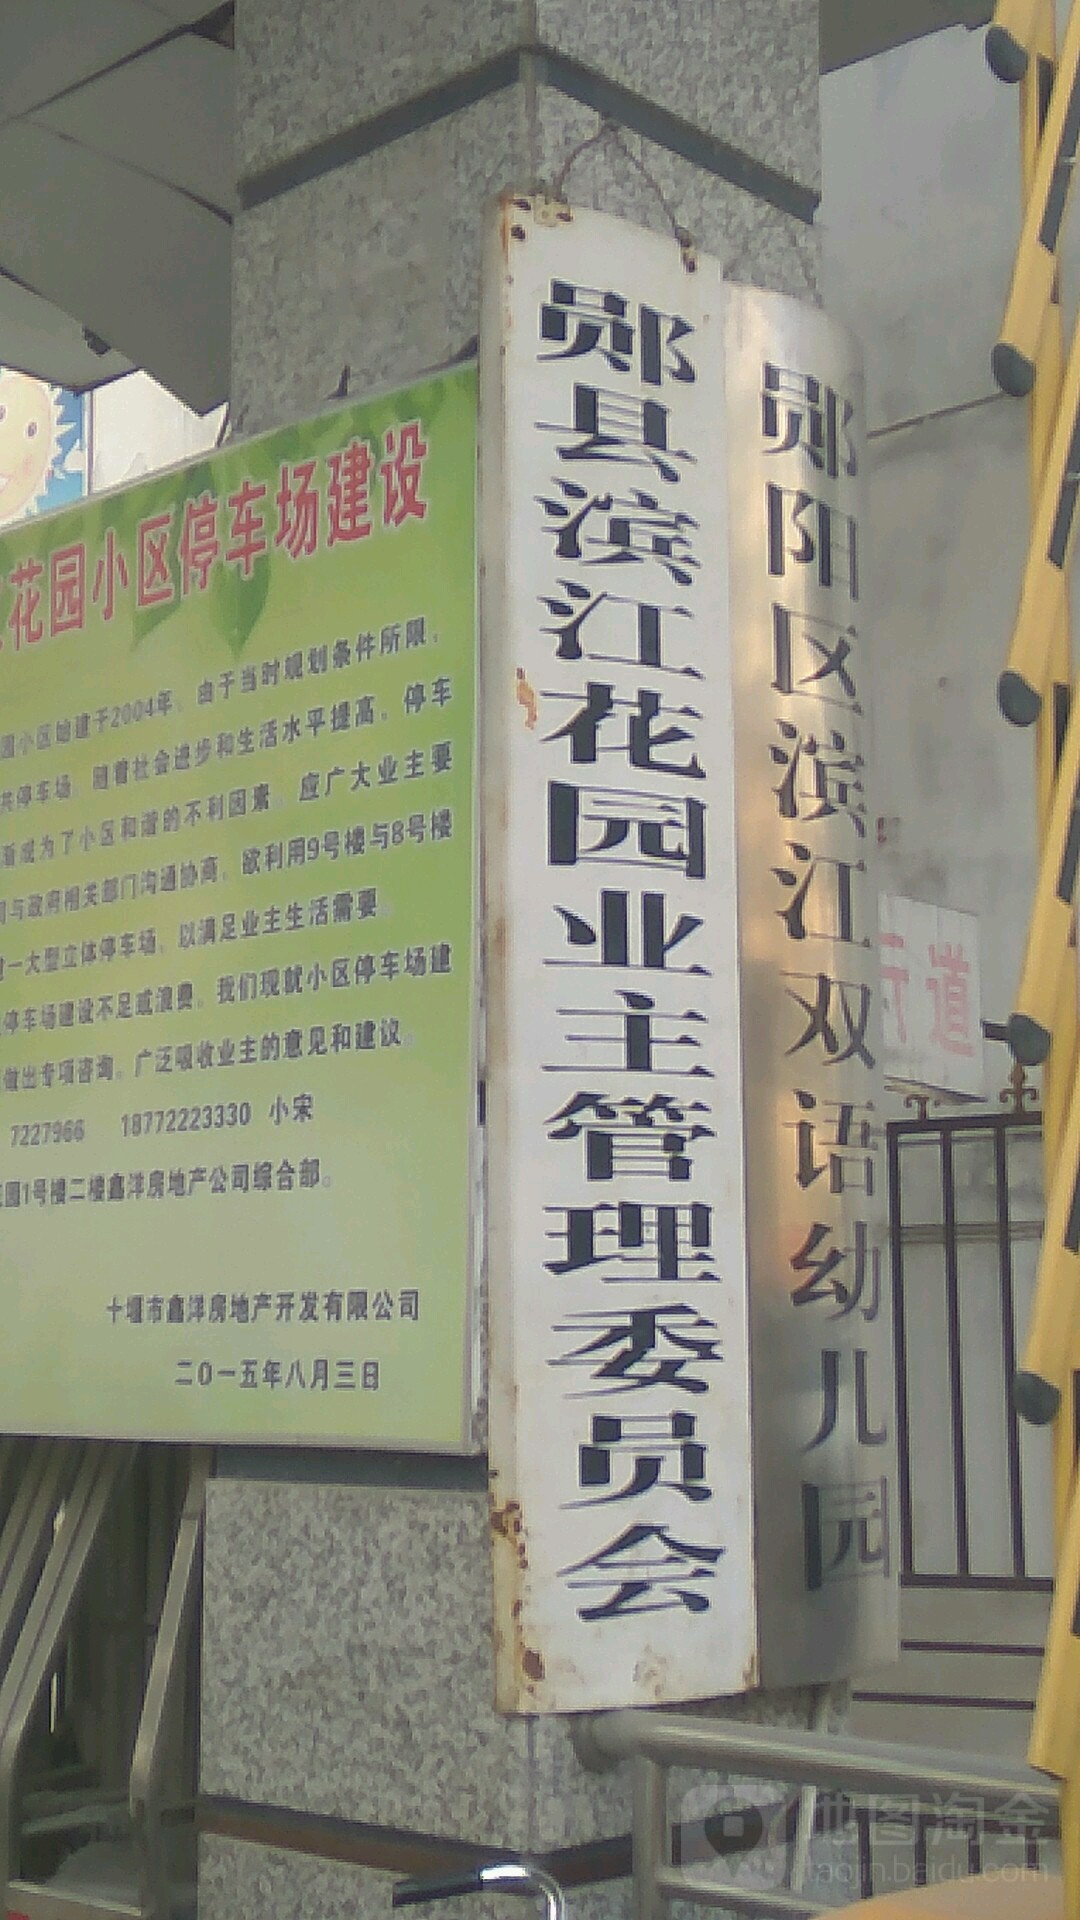 花园小区停车场建设
园小区始建于2004年，由于当时规划条件所限，
共停车场，随着社会进步和生活水平提高，停车
渐成为了小区和谐的不利因素。应广大业主要
司与政府相关部门沟通协商，欲利用9号楼与8号楼
建一大型立体停车场，以满足业主生活需要。
停车场建设不足或浪费，我们现就小区停车场建
做出专项咨询，广泛吸收业主的意见和建议。
7227966 18772223330 小宋
花园1号楼二楼鑫洋房地产公司综合部。
十堰市鑫洋房地产开发有限公司
二〇一五年八月三日
郧县滨江花园业主管理委员会
郧阳区滨江双语幼儿园
行道
地图淘金
taojin.baidu.com